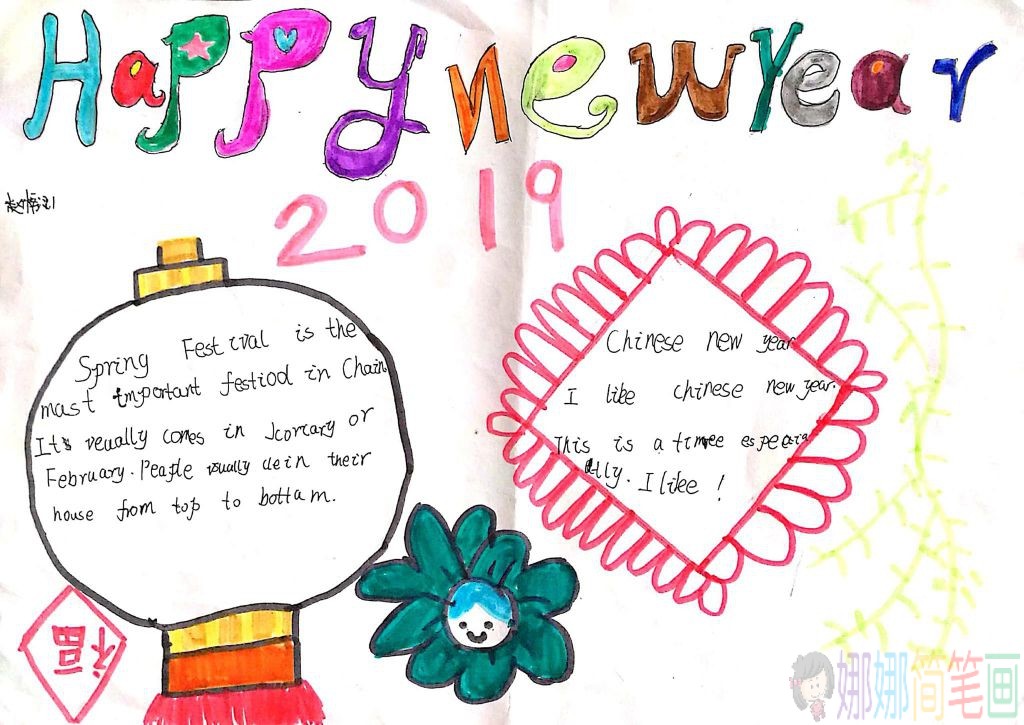 HaPPy new Year
2019
Spring Festival is the
mast important festiod in Chain
It's veually comes in Jcornary or
February. Peaple usually clein their
house from top to bottam.
Chinese new year
I like chinese new year.
This is a timee especia
lly. I like!
福
娜娜简笔画